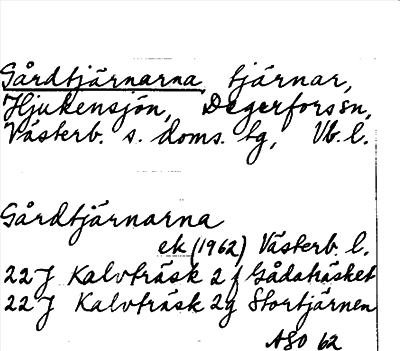 Gårdtjärnarna, tjärnar,
Hjukensjön, Degerfors sn,
Västerb. s. doms. tg, Vb. l.
Gårdtjärnarna
ek (1962) Västerb. l.
22 J Kalvträsk 2 f Gådaträsket
22 J Kalvträsk 2g Stortjärnen
ASO 62